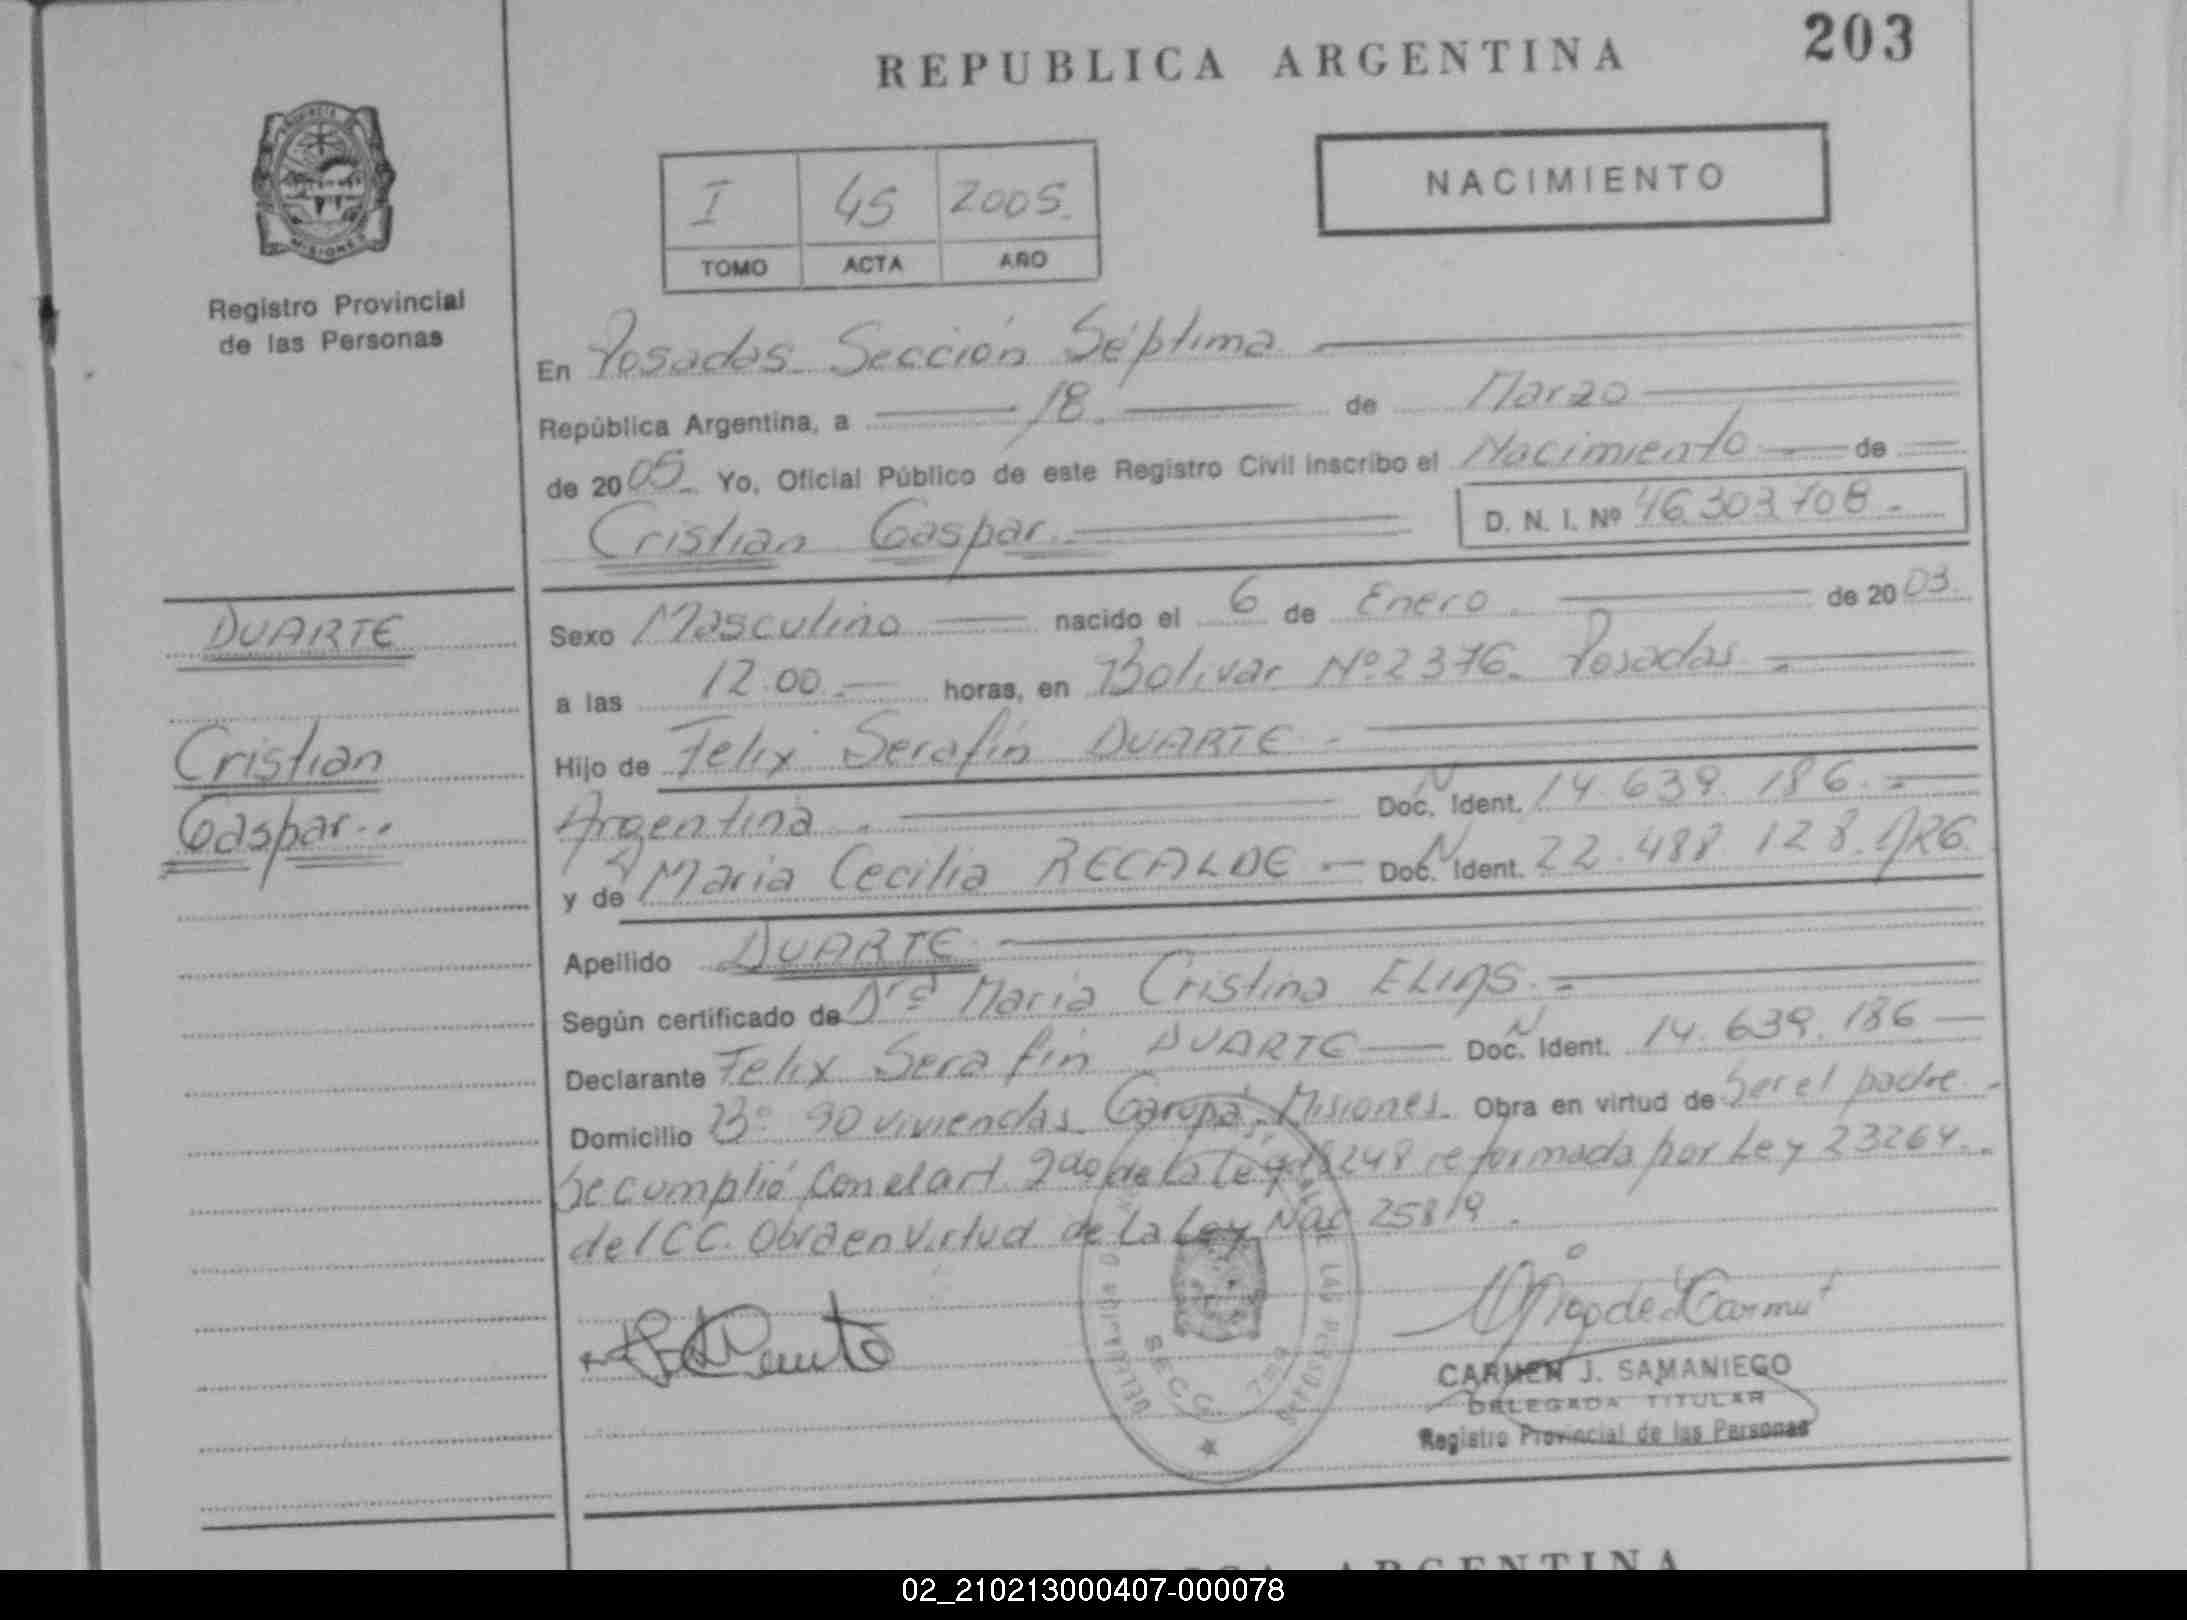 REPUBLICA ARGENTINA
203
PROVINCIA
MISIONES
Registro Provincial
de las Personas
I 45 2005
TOMO ACTA AÑO
NACIMIENTO
En Posadas Sección Séptima
República Argentina, a 18 de Marzo
de 2005 Yo, Oficial Público de este Registro Civil inscribo el Nacimiento de
Cristian Gaspar D. N. I. Nº 46.303.708
DUARTE
Cristian
Gaspar
Sexo Masculino nacido el 6 de Enero de 2003
a las 12.00 horas, en Bolivar Nº 2376 Posadas
Hijo de Felix Serafín DUARTE
Argentina Doc. N Ident. 14.639.186
y de Maria Cecilia RECALDE Doc. N Ident. 22.488.128 ARG
Apellido DUARTE
Según certificado de Drª Maria Cristina ELIAS
Declarante Felix Serafín DUARTE Doc. N Ident. 14.639.186
Domicilio Bº 90 viviendas Garupá, Misiones Obra en virtud de Ser el padre
Se cumplió con el art. 2do de la Ley 18248 reformada por Ley 23264
del CC. Obra en virtud de la Ley Nac 25819
SECC. 7ma
DE LAS PERSONAS
CARMEN J. SAMANIEGO
DELEGADA TITULAR
Registro Provincial de las Personas
ARGENTINA
02_210213000407-000078